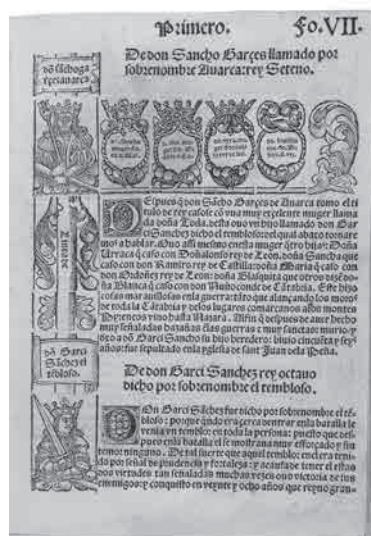 Primero. Fo.VII.
De don Sancho Garçes llamado por
sobrenombre Auarca: rey Seteno.
Despues q̄ don Sācho Garçes de Auarca tomo el ti
tulo de rey casose cō vna muy excelente muger llama
da doña Toda. desta ouo vn hijo llamado don Gar
ci Sanchez dicho el tembloso: del qual abaxo tornare
mos a hablar. Ouo assi mesmo en esta muger q̄tro hijas: Doña
Urraca q̄ caso con Doñalonso rey de Leon. doña Sancha que
caso con don Ramiro rey de Castilla: doña Maria q̄ caso con
don Ordoñez rey de Leon: doña Blasquita que otros dizē do
ña Blanca q̄ caso con don Nuño conde de Cātabria. Este hizo
cosas marauillosas en la guerra: tāto que alançando los moros
de toda la Cātabria y delos lugares comarcanos alos montes
Pyreneos vino hasta Najara. Alfin q̄ despues de auer hecho
muy señaladas hazañas en las guerras murio: y
dexo a dō Garci Sancho su hijo heredero: biuio cincuēta y seys
años: fue sepultado en la yglesia de sant Juan dela Peña.
De don Garci Sanchez rey octauo
dicho por sobrenombre el tembloso.
Don Garci Sāchez fue dicho por sobrenombre el tē
bloso: porque quādo era çerca de entrar en la batalla le
venia vn temblor en toda la persona: puesto que des
pues en la batalla el se mostraua muy efforçado y sin
temor ninguno. De tal fuerte que aquel temblor en el era teni
do por señal de prudencia y fortaleza: y a causa de tener el estas
dos virtudes tan señaladas muchas vezes ouo victoria de sus
enemigos: y conquisto en veynte y ocho años que reyno gran-
dō Sāchogar
Auarca
dō Garci
Sāchez el
tēbloso.